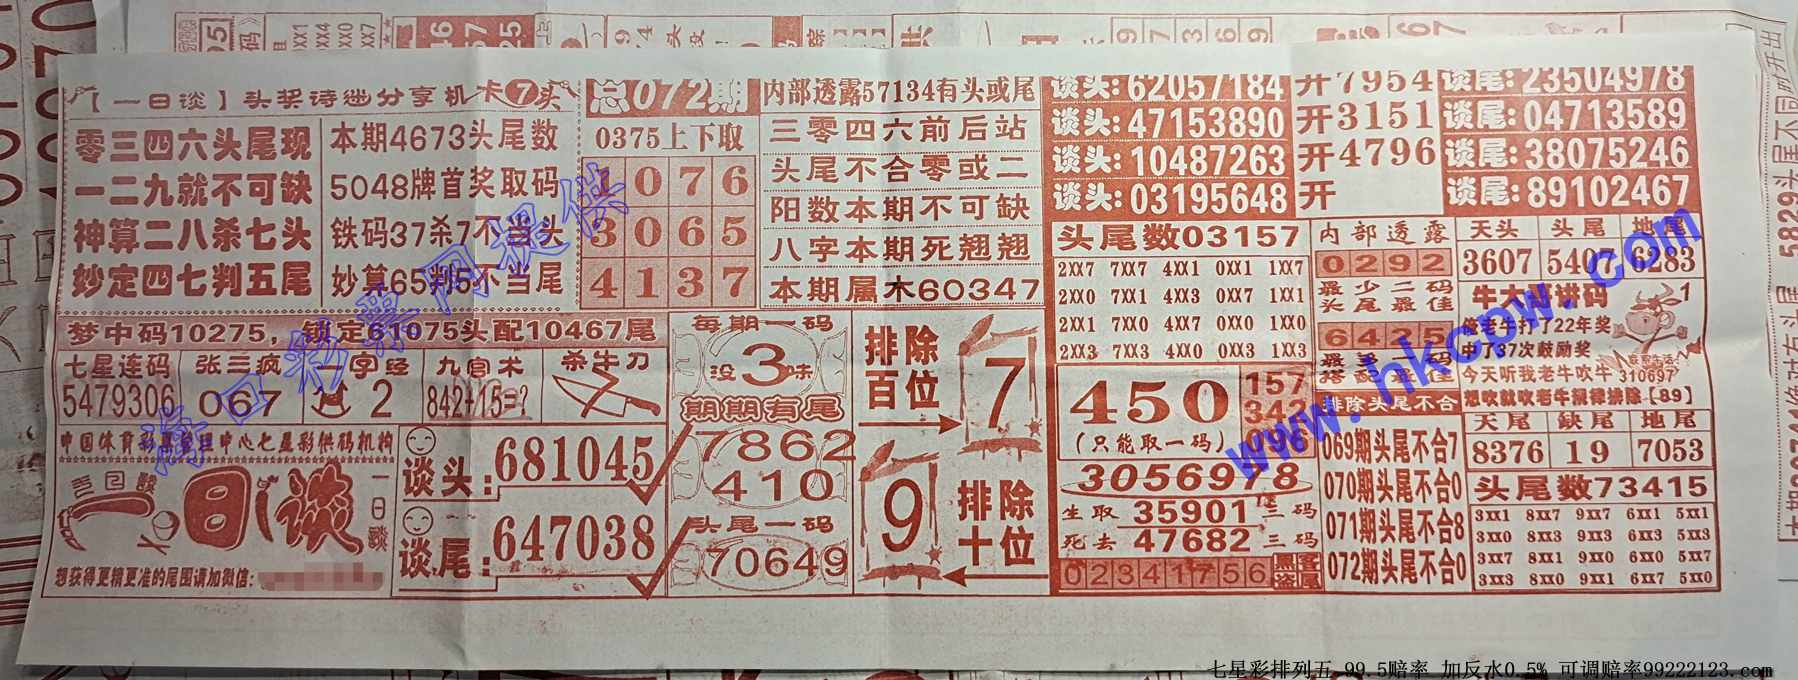 【一日谈】头奖诗谜分享机
卡7头
零三四六头尾现
一二九就不可缺
神算二八杀七头
妙定四七判五尾
本期4673头尾数
5048牌首奖取码
铁码37杀7不当头
妙算65判5不当尾
总072期
0375上下取
076
3065
4137
内部透露57134有头或尾
三零四六前后站
头尾不合零或二
阳数本期不可缺
八字本期死翘翘
本期属木60347
谈头:62057184 开7954 谈尾:23504978
谈头:47153890 开3151 谈尾:04713589
谈头:10487263 开4796 谈尾:38075246
谈头:03195648 开 谈尾:89102467
梦中码10275，锁定61075头配10467尾
七星连码
5479306
张三疯
067
一字经
2
九宫术
842+15=?
杀牛刀
中国体育彩票管理中心七星彩供码机构
一日谈
一日谈
想获得更精更准的尾围请加微信:
谈头:681045
谈尾:647038
每期一码
没3味
期期有尾
7862
410
头尾一码
70649
排除百位
7
9
排除十位
头尾数03157
2XX7 7XX7 4XX1 0XX1 1XX7
2XX0 7XX1 4XX3 0XX7 1XX1
2XX1 7XX0 4XX7 0XX0 1XX0
2XX3 7XX3 4XX0 0XX3 1XX3
450
(只能取一码)
157
342
096
3056978
生取35901三码
死去47682三码
02341756
黑客盗尾
内部透露
0292
最少二码
头尾最佳
6425
最多一码
搭配最佳
排除头尾不合
069期头尾不合7
070期头尾不合0
071期头尾不合8
072期头尾不合0
天头 头尾 地尾
3607 5407 6283
牛大哥讲码
俺老牛打了22年奖
中了37次鼓励奖
今天听我老牛吹牛
310697
想吹就吹老牛规律排除【89】
天尾 缺尾 地尾
8376 19 7053
头尾数73415
3XX1 8XX7 9XX7 6XX1 5XX1
3XX0 8XX3 9XX3 6XX3 5XX3
3XX7 8XX1 9XX0 6XX0 5XX7
3XX3 8XX0 9XX1 6XX7 5XX0
海口彩票网提供
www.hkcpw.com
七星彩排列五 99.5赔率 加反水0.5% 可调赔率99222123.com